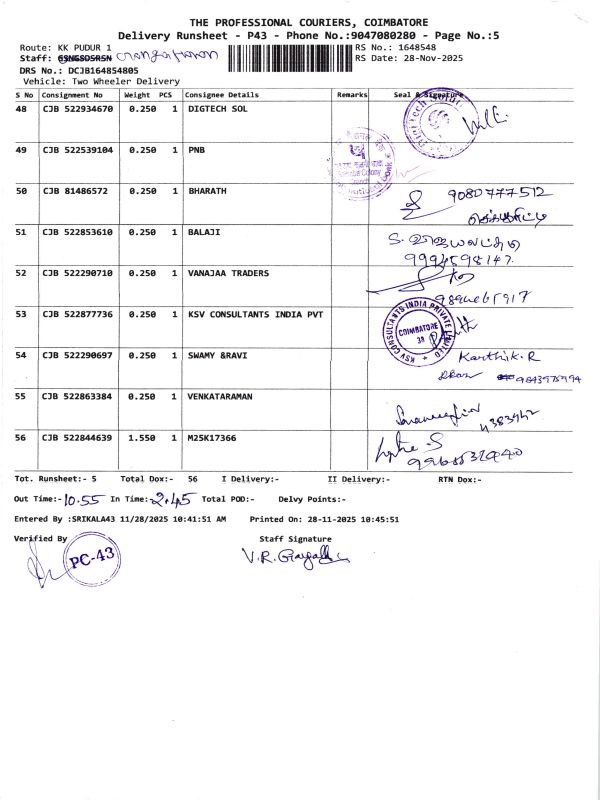 THE PROFESSIONAL COURIERS, COIMBATORE
Delivery Runsheet - P43 - Phone No.:9047080280 - Page No.:5
Route: KK PUDUR 1 RS No.: 1648548
Staff: RS Date: 28-Nov-2025
DRS No.: DCJB164854805
Vehicle: Two Wheeler Delivery
S No Consignment No Weight PCS Consignee Details Remarks Seal & Signature
48 CJB 522934670 0.250 1 DIGTECH SOL
49 CJB 522539104 0.250 1 PNB
50 CJB 81486572 0.250 1 BHARATH 9080777512
51 CJB 522853610 0.250 1 BALAJI
9994598147.
52 CJB 522290710 0.250 1 VANAJAA TRADERS
53 CJB 522877736 0.250 1 KSV CONSULTANTS INDIA PVT KSV CONSULTANTS INDIA PRIVATE LIMITED COIMBATORE 38
54 CJB 522290697 0.250 1 SWAMY &RAVI Karthik.R
55 CJB 522863384 0.250 1 VENKATARAMAN
56 CJB 522844639 1.550 1 M25K17366
Tot. Runsheet:- 5 Total Dox:- 56 I Delivery:- II Delivery:- RTN Dox:-
Out Time:- 10.55 In Time:- 2.45 Total POD:- Delvy Points:-
Entered By :SRIKALA43 11/28/2025 10:41:51 AM Printed On: 28-11-2025 10:45:51
Verified By Staff Signature
PC-43 V.R.